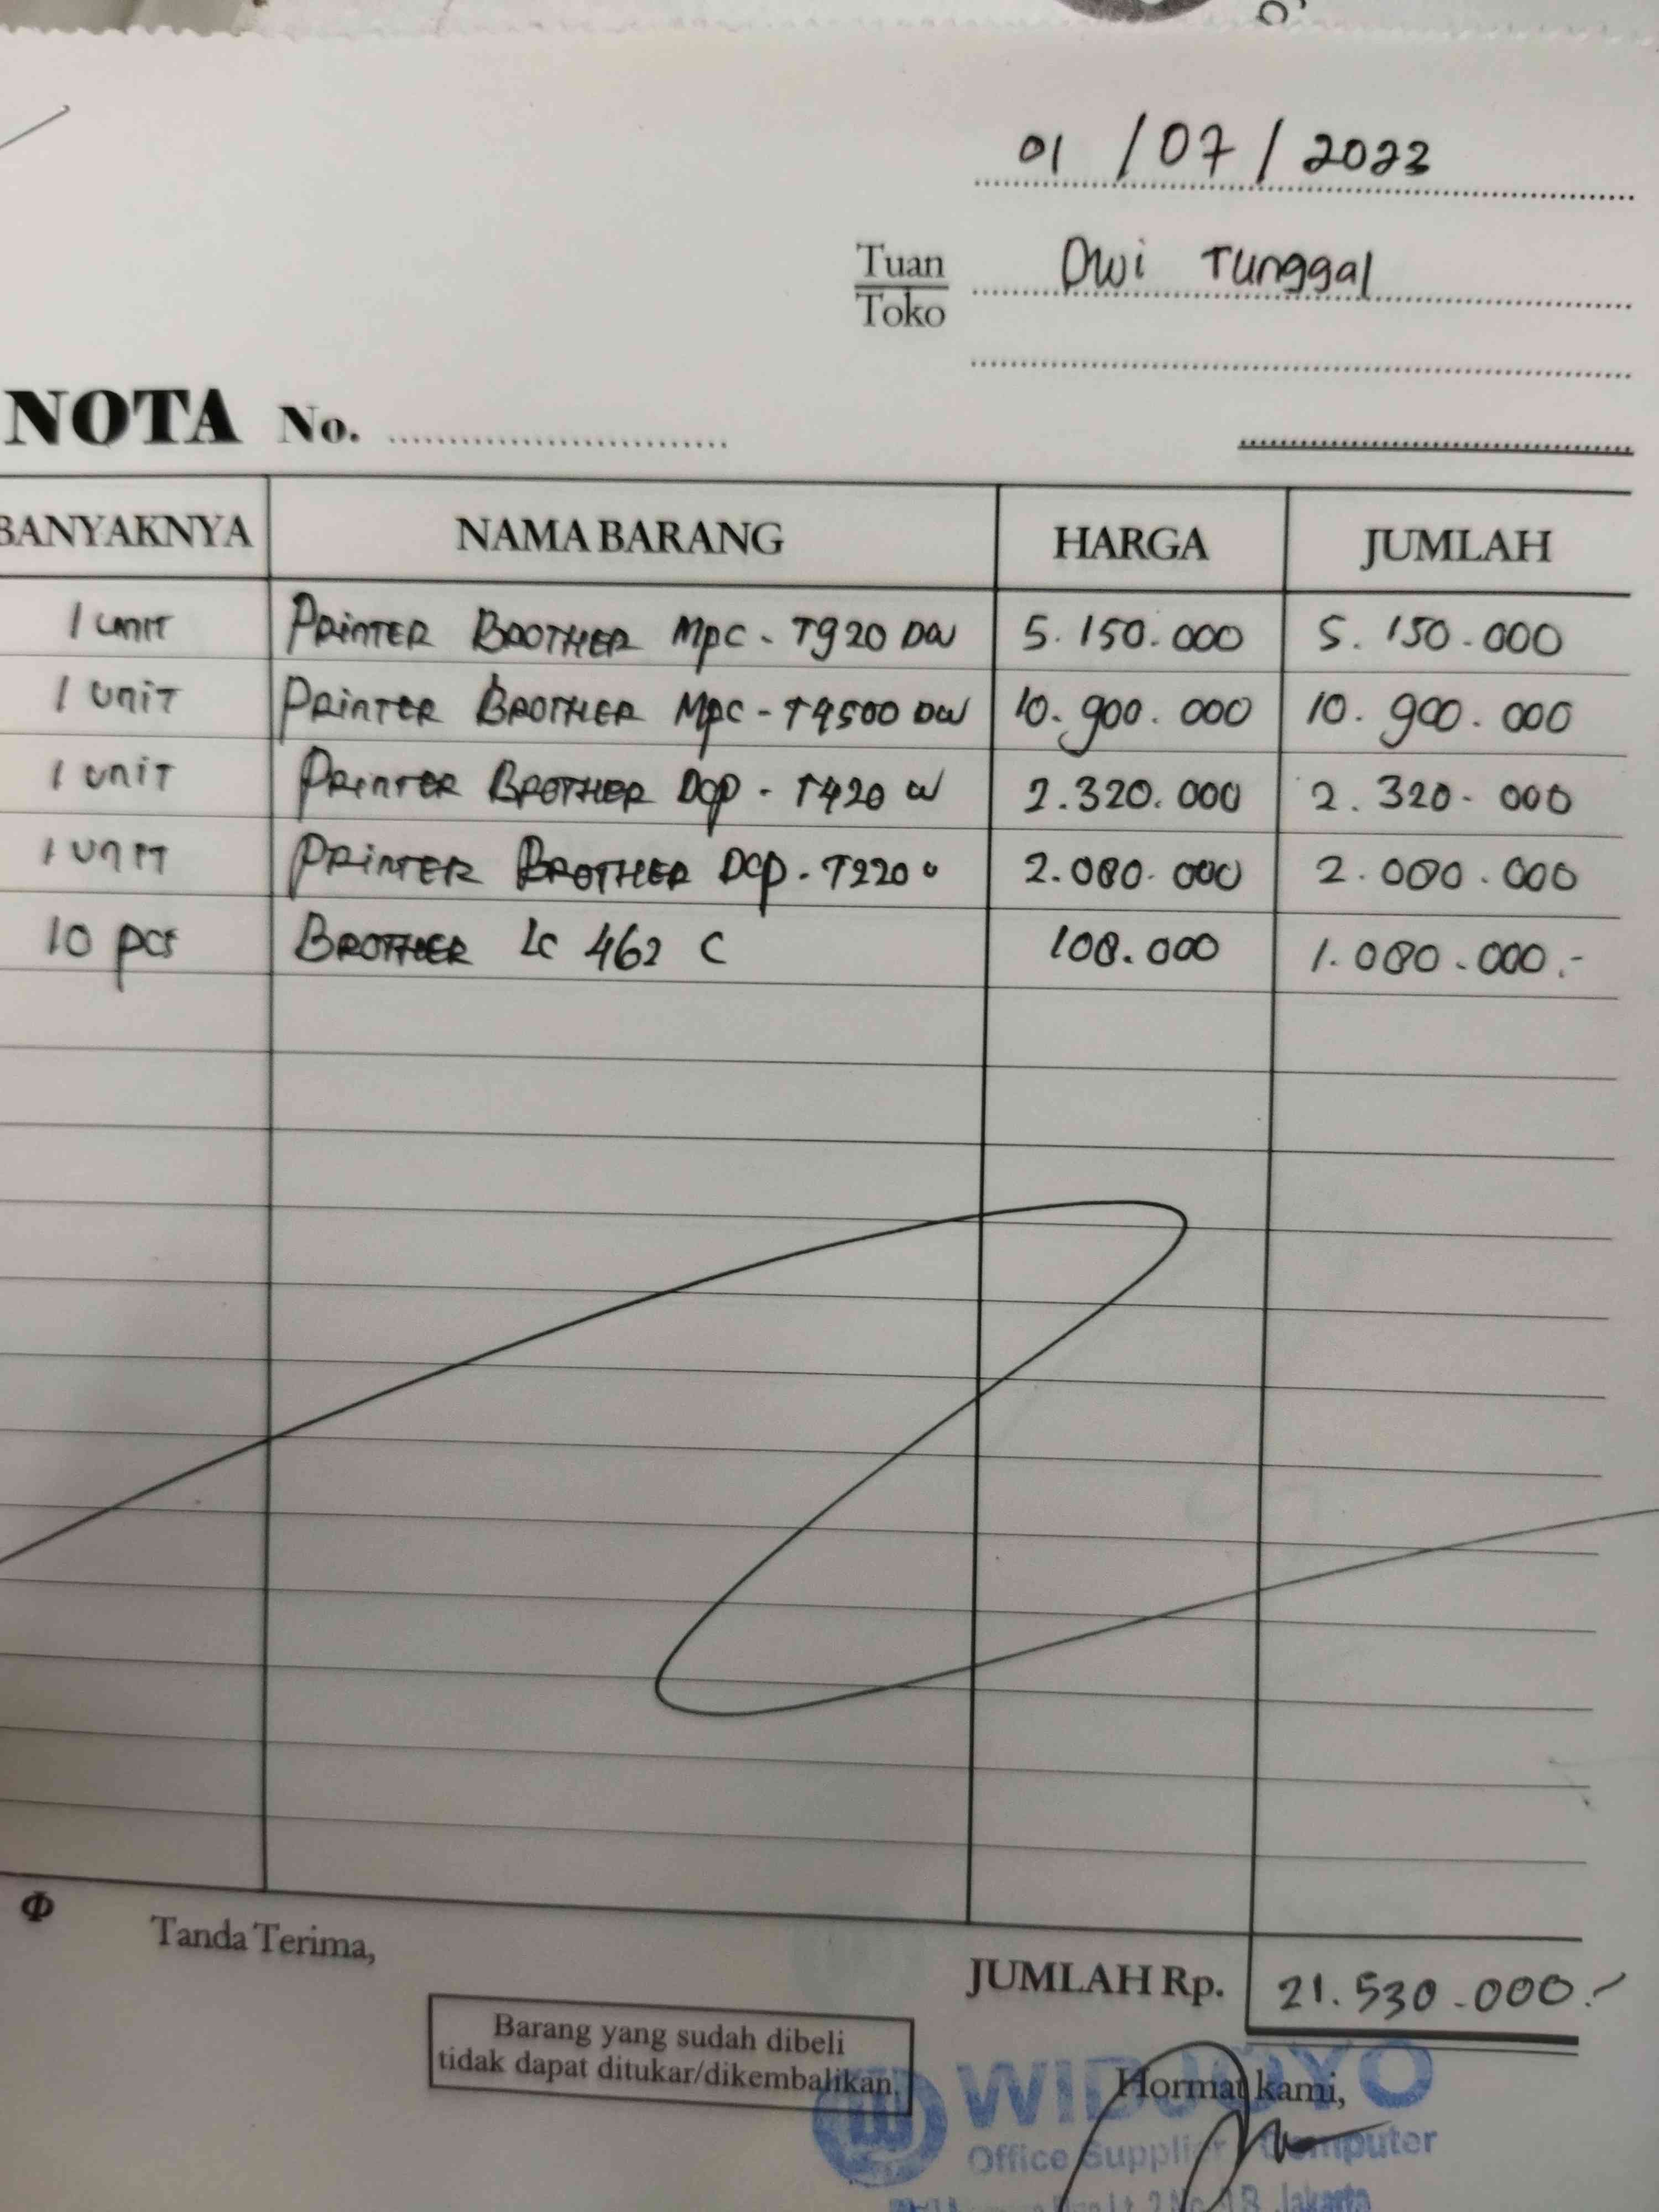 01 / 07 / 2023
Tuan Dwi Tunggal
Toko
NOTA No.
BANYAKNYA NAMA BARANG HARGA JUMLAH
1 unit PRinTER BROTHER Mpc - T920 DW 5.150.000 5.150.000
1 unit PRinTER BROTHER Mpc - T4500 DW 10.900.000 10.900.000
1 unit PRinTER BROTHER Dcp - T420 W 2.320.000 2.320.000
1 unit PRinTER BROTHER Dcp - T220 2.080.000 2.080.000
10 pcs BROTHER Lc 462 C 108.000 1.080.000.-
Φ Tanda Terima,
JUMLAH Rp. 21.530.000.-
Barang yang sudah dibeli
tidak dapat ditukar/dikembalikan.
WIDJOYO
Hormat kami,
Office Supplier Computer
Lt. 2 No. Jakarta